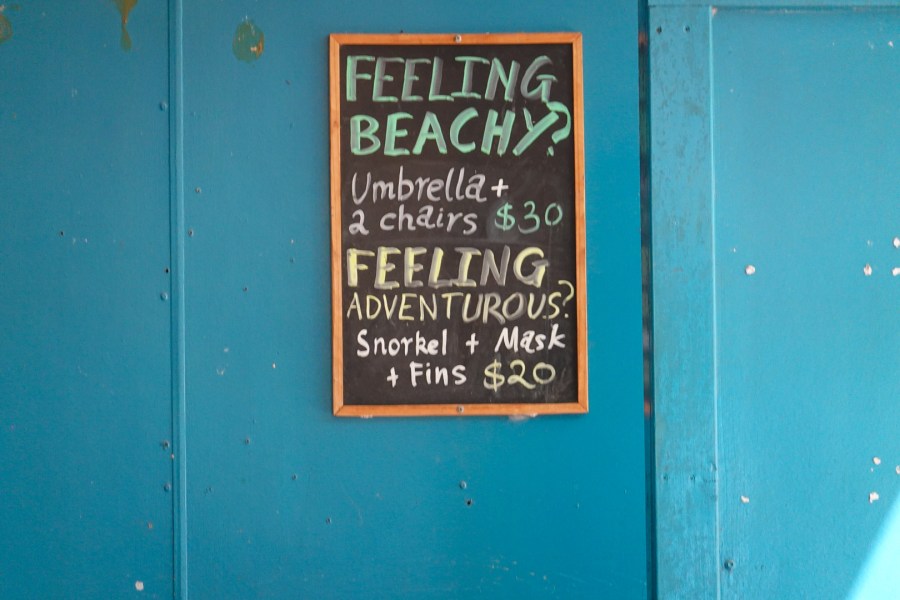 FEELING
BEACHY?
Umbrella +
2 chairs $30
FEELING
ADVENTUROUS?
Snorkel + Mask
+ Fins $20